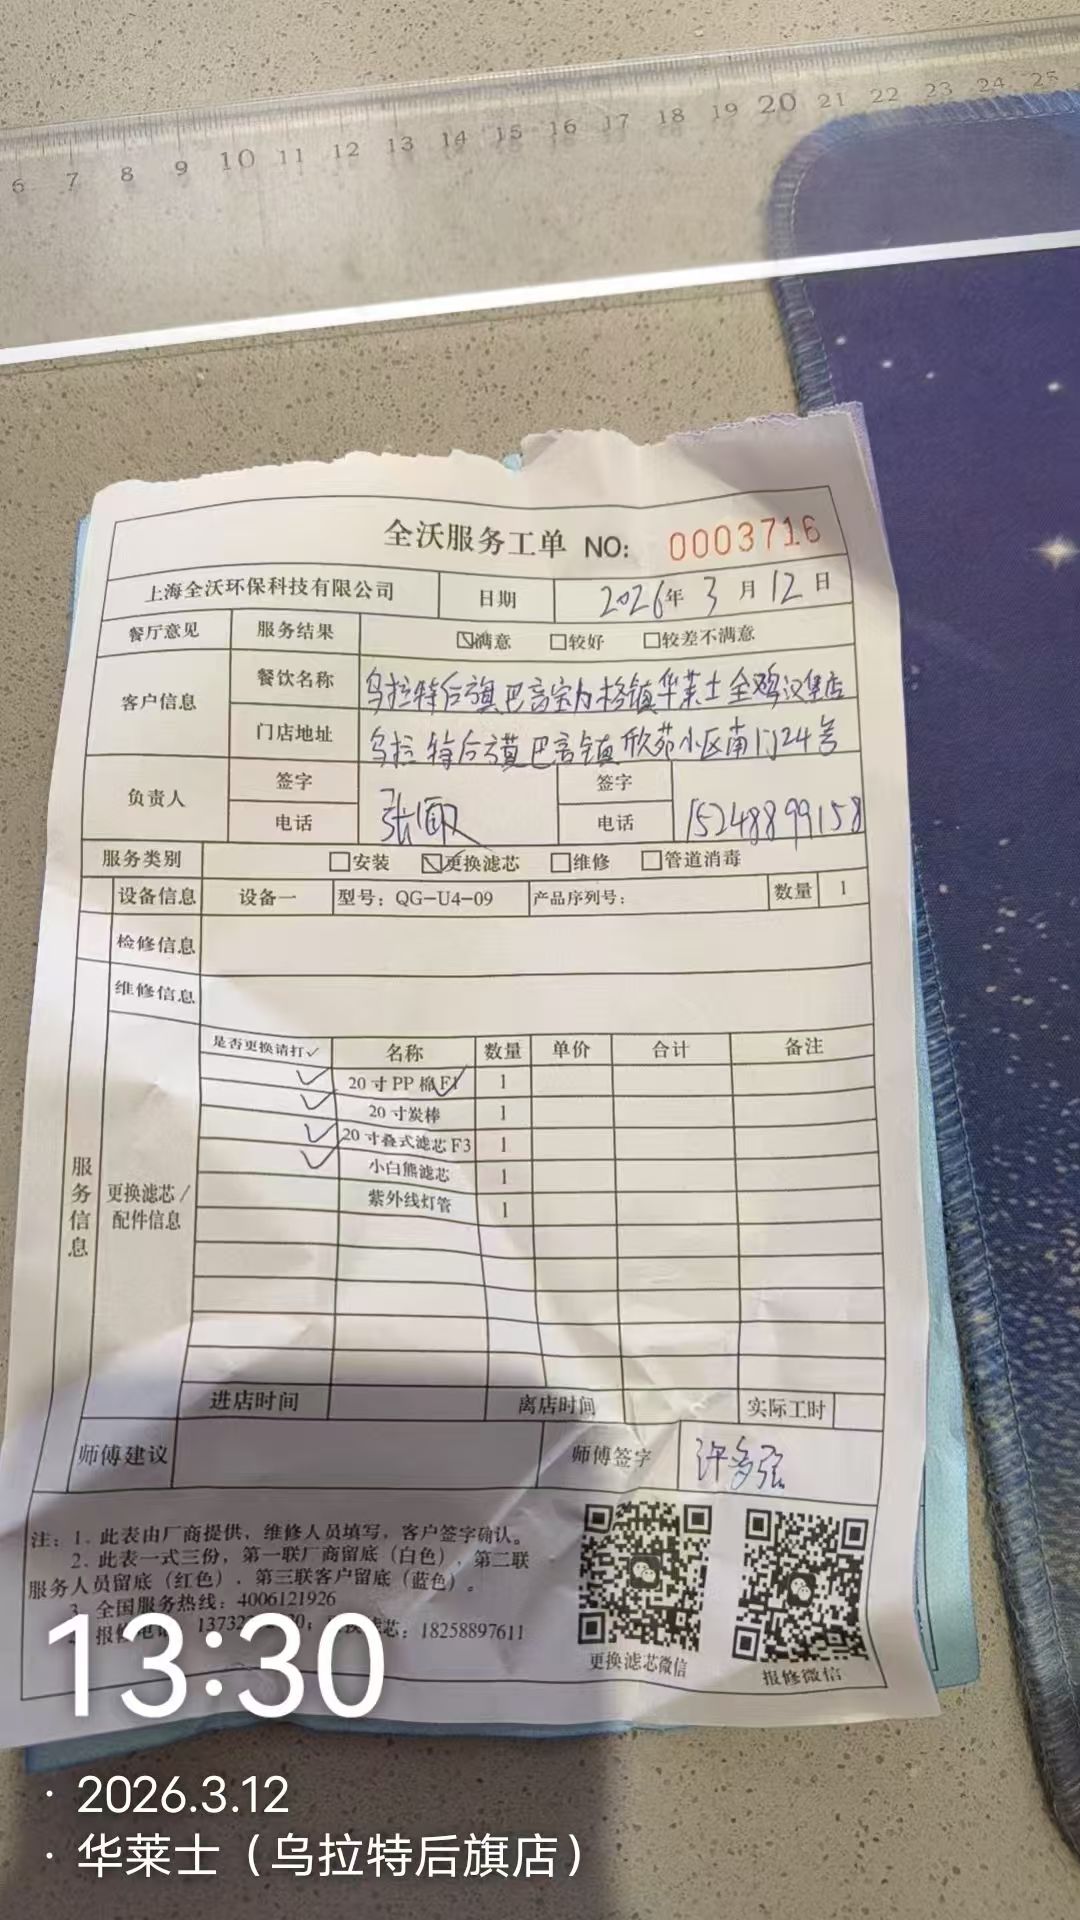 6 7 8 9 10 11 12 13 14 15 16 17 18 19 20 21 22 23 24 25
全沃服务工单 NO: 0003716
上海全沃环保科技有限公司 日期 2026年 3 月 12 日
餐厅意见 服务结果 ☑满意 □较好 □较差不满意
客户信息 餐饮名称 乌拉特后旗巴音宝力格镇华莱士全鸡汉堡店
门店地址 乌拉特后旗巴音镇欣苑小区南门24号
负责人 签字 张 签字
电话 电话 15248899158
服务类别 □安装 ☑更换滤芯 □维修 □管道消毒
设备信息 设备一 型号：QG-U4-09 产品序列号： 数量 1
检修信息
维修信息
服务信息
更换滤芯/配件信息
是否更换请打✓ 名称 数量 单价 合计 备注
✓ 20寸PP棉F1 ✓ 1
✓ 20寸炭棒 1
✓ 20寸叠式滤芯F3 1
✓ 小白熊滤芯 1
紫外线灯管 1
进店时间 离店时间 实际工时
师傅建议 师傅签字 许多强
注：1、此表由厂商提供，维修人员填写，客户签字确认。
2、此表一式三份，第一联厂商留底（白色），第二联
服务人员留底（红色），第三联客户留底（蓝色）。
3、全国服务热线：4006121926
报修电话 1373 0； 换滤芯：18258897611
更换滤芯微信 报修微信
13:30
· 2026.3.12
· 华莱士（乌拉特后旗店）